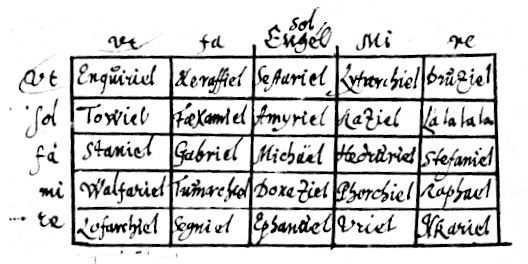 sol
Vt fa Engel Mi re
Vt Enquiriel Xeraffiel Sestariel Lytarchiel Bruziel
sol Towiel Amyriel Raziel Lalatala
fa Staniel Gabriel Michäel Stefaniel
mi Walfariel Tumarchiel Doxaziel Phorchiel Raphael
re Losarchiel Segniel Ephandiel Vriel